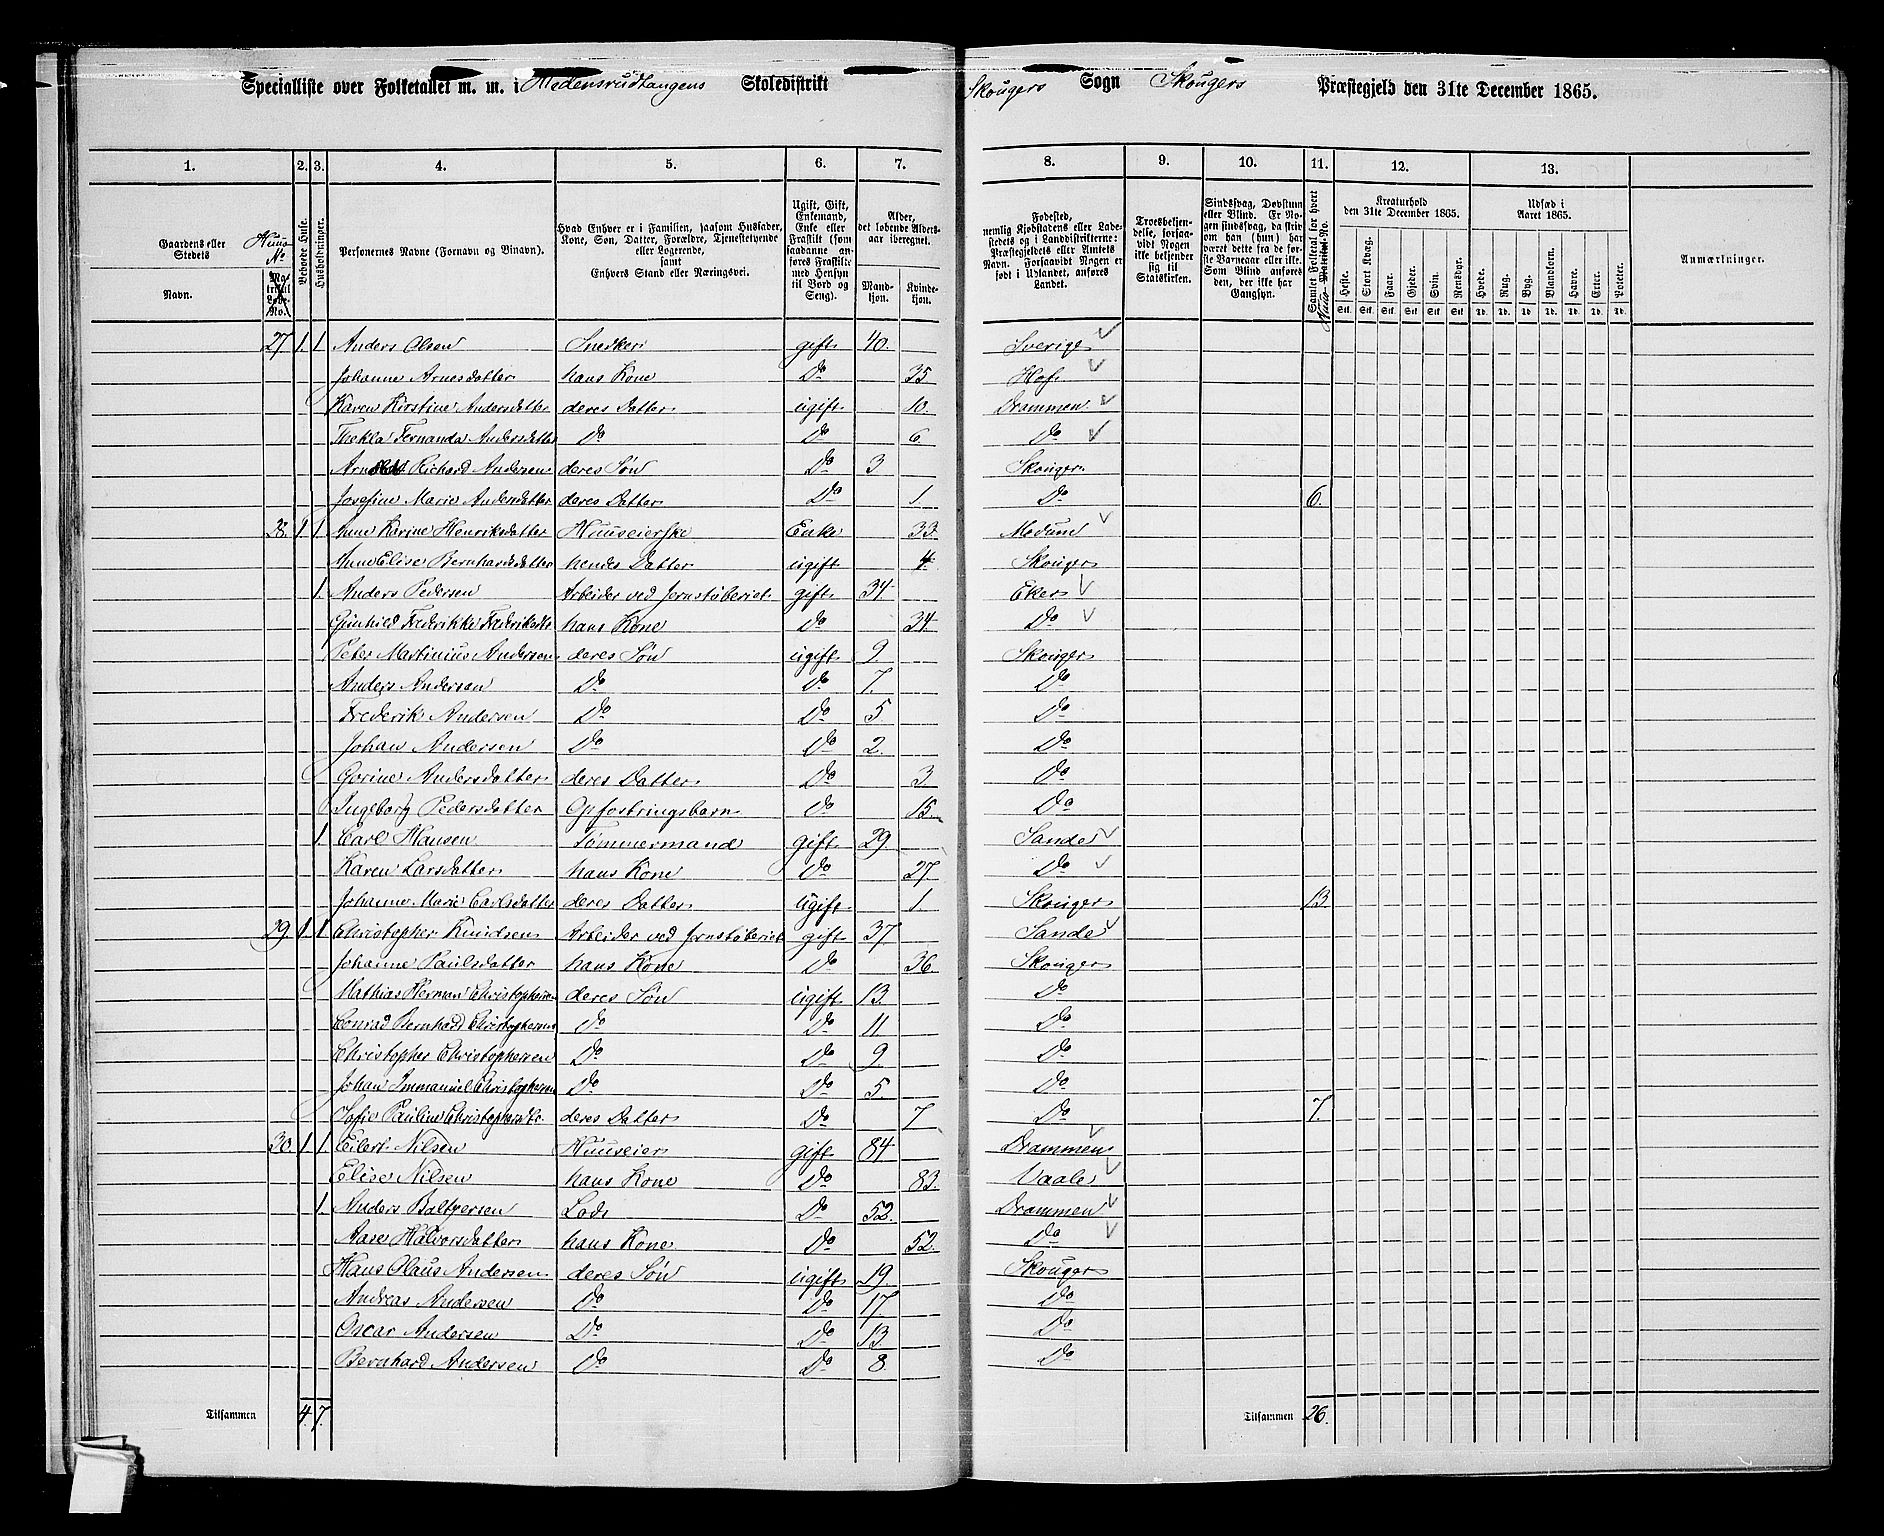 Specialliste over Folketallet m. m. i Madensrudtangens Skoledistrikt Skougers Sogn Skougers Præstegjeld den 31te December 1865.
1. 2. 3. 4. 5. 6. 7. 8. 9. 10. 11. 12. 13.
Gaardens eller Stedets Navn.
Huus No
Matrikul Løbe-No.
Beboede Huse.
Husholdninger.
Personernes Navne (Fornavn og Binavn).
Hvad Enhver er i Familien, saasom Husfader, Kone, Søn, Datter, Forældre, Tjenestetyende eller Logerende, samt Enhvers Stand eller Næringsvei.
Ugift, Gift, Enkemand, Enke eller Fraskilt (som saadanne anføres Fraskilte med Hensyn til Bord og Seng).
Alder, det løbende Aldersaar iberegnet.
Mandkjøn. Kvindekjøn.
Fødested, nemlig Kjøbstadens eller Ladestedets og i Landdistrikterne: Præstegjeldets eller Amtets Navn. Forsaavidt Nogen er født i Udlandet, anføres Landet.
Troesbekjendelse, forsaavidt Nogen ikke bekjender sig til Statskirken.
Sindssvag, Døvstum eller Blind. Er Nogen sindssvag, da skrives om han (hun) har været dette fra de første Barneaar eller ikke. Som Blind anføres den, der ikke har Gangsyn.
Samlet Folketal for hvert Huus-Matrikul-No.
Kreaturhold den 31te December 1865.
Heste. Stort Kvæg. Faar. Gjeder. Svin. Rensdyr.
Udsæd i Aaret 1865.
Hvede. Rug. Byg. Blandkorn. Havre. Erter. Poteter.
Anmærkninger.
27 1. 1 Anders Olsen Snedker gift 40. Sverige
Johanne Arnesdatter hans Kone Do 35 Hof
Karen Kirstine Andersdatter deres Datter ugift 10. Drammen
Thekla Fernanda Andersdatter Do Do 6. Do
Richard Andersen deres Søn Do 3 Skouger
Josefine Marie Andersdatter deres Datter Do 1. Do 6.
28. 1. 1 Anne Karine Henriksdatter Huuseierske Enke 33. Modum
Anne Elise Bernhardsdatter hendes Datter ugift 4. Skouger
1. Anders Pedersen Arbeider ved Jernstøberiet gift 34 Eker
Gunhild Frederikke Frederiksdtr hans Kone Do 34. Do
Peter Martinius Andersen deres Søn ugift 9. Skouger
Anders Andersen Do Do 7. Do
Frederik Andersen Do Do 5. Do
Johan Andersen Do Do 2. Do
Gorine Andersdatter deres Datter Do 3 Do
Ingeborg Pedersdatter Opfostringsbarn Do 15. Do
1 Carl Hansen Tømmermand gift 29. Sande
Karen Larsdatter hans Kone Do 27. Do
Johanne Marie Carlsdatter deres Datter ugift 1. Skouger 13.
29. 1. 1. Christopher Knudsen Arbeider ved Jernstøberiet gift 37 Sande
Johanne Paulsdatter hans Kone Do 36. Skouger
Mathias Herman Christophersen deres Søn ugift 13. Do
Conrad Bernhard Christophersen Do Do 11 Do
Christopher Christophersen Do Do 9. Do
Johan Immanuel Christophersen Do Do 5. Do
Sofie Pauline Christophersdtr. deres Datter Do 7 Do 7.
30. 1 1. Eilert Nilsen Huuseier gift 84 Drammen
Elise Nilsen hans Kone Do 83. Vaale
1 Anders Baltzersen Lods Do 52. Drammen
Aase Halvorsdatter hans Kone Do 52. Do
Hans Olaus Andersen deres Søn ugift 19. Skouger
Andreas Andersen Do Do 17 Do
Oscar Andersen Do Do 13. Do
Bernhard Andersen Do Do 8 Do
Tilsammen 4. 7. Tilsammen 26.